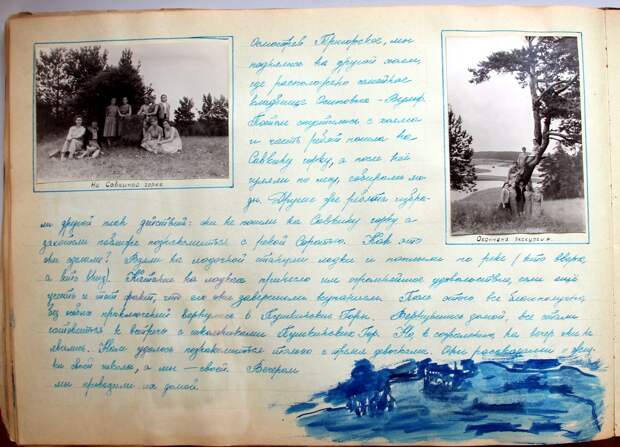 Осмотрев Тригорское, мы
поднялись на другой холм,
где расположено семейное
кладбище Осиповых-Вульф.
Потом спустились с холма
и часть ребят пошла на
Саввину горку, а после все
гуляли по лесу, собирали
На Савкиной горке
Окончена экскурсия.
другой план действий: они не пошли на Саввину горку а
решили поближе познакомиться с рекой Соротью. Как это
они сделали? Взяли на лодочной станции лодки и поплыли по реке (кто вверх,
а кто вниз). Катание на лодках принесло им огромнейшее удовольствие, если ещё
учесть и тот факт, что его они завершили купанием. После этого все благополучно,
без новых приключений вернулись в Пушкинские Горы. Вернувшись домой, все стали
готовиться к встрече с школьниками Пушкинских Гор. Но, к сожалению, на вечер они не
явились. Нам удалось познакомиться только с тремя девочками. Они рассказали о жиз
ни своей школы, а мы — своей. Вечером
мы проводили их домой.